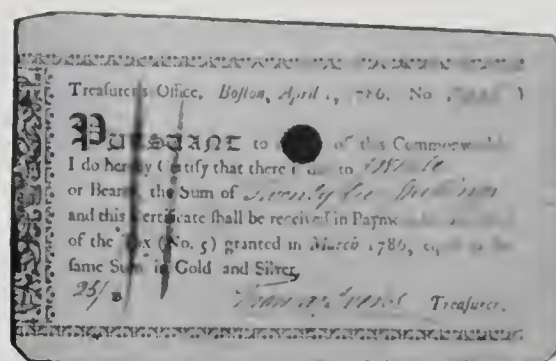 Treasurer's Office, Boston, April 1, 1786. No
PURSUANT to of this Commonwealth
I do hereby Certify that there is due to
or Bearer, the Sum of Twenty five Shillings
and this Certificate shall be received in Payment
of the Tax (No. 5) granted in March 1786, equal to the
same Sum in Gold and Silver,
25/ Treasurer.